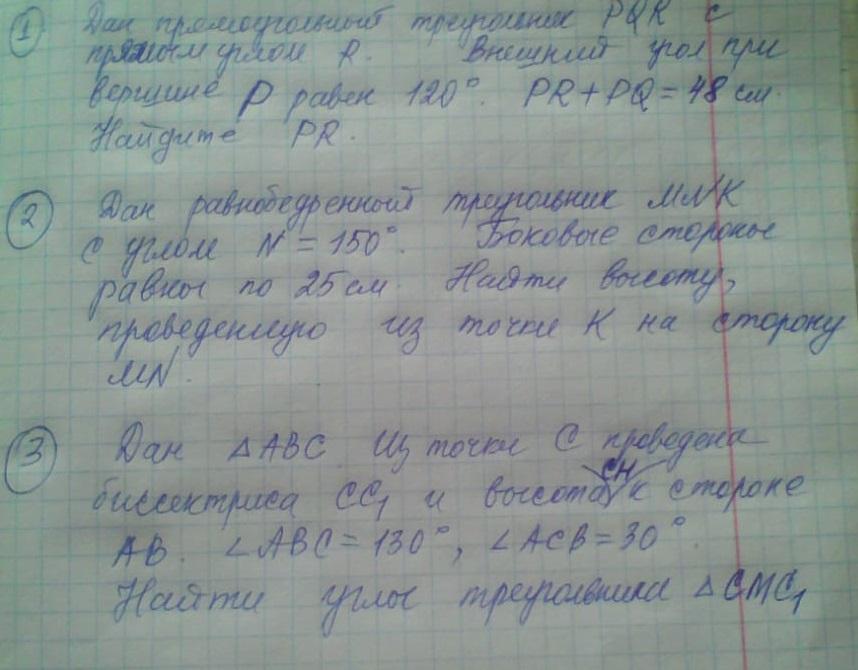 1 Дан прямоугольный треугольник PQR с
прямым углом R. Внешний угол при
вершине P равен 120°. PR+PQ=48 см.
Найдите PR.
2 Дан равнобедренный треугольник MNK
с углом N = 150°. Боковые стороны
равны по 25 см. Найти высоту,
проведенную из точки K на сторону
MN.
3 Дан △ABC. Из точки C проведена
биссектриса CC₁ и высота CH к стороне
AB. ∠ABC = 130°, ∠ACB = 30°.
Найти углы треугольника △CHC₁